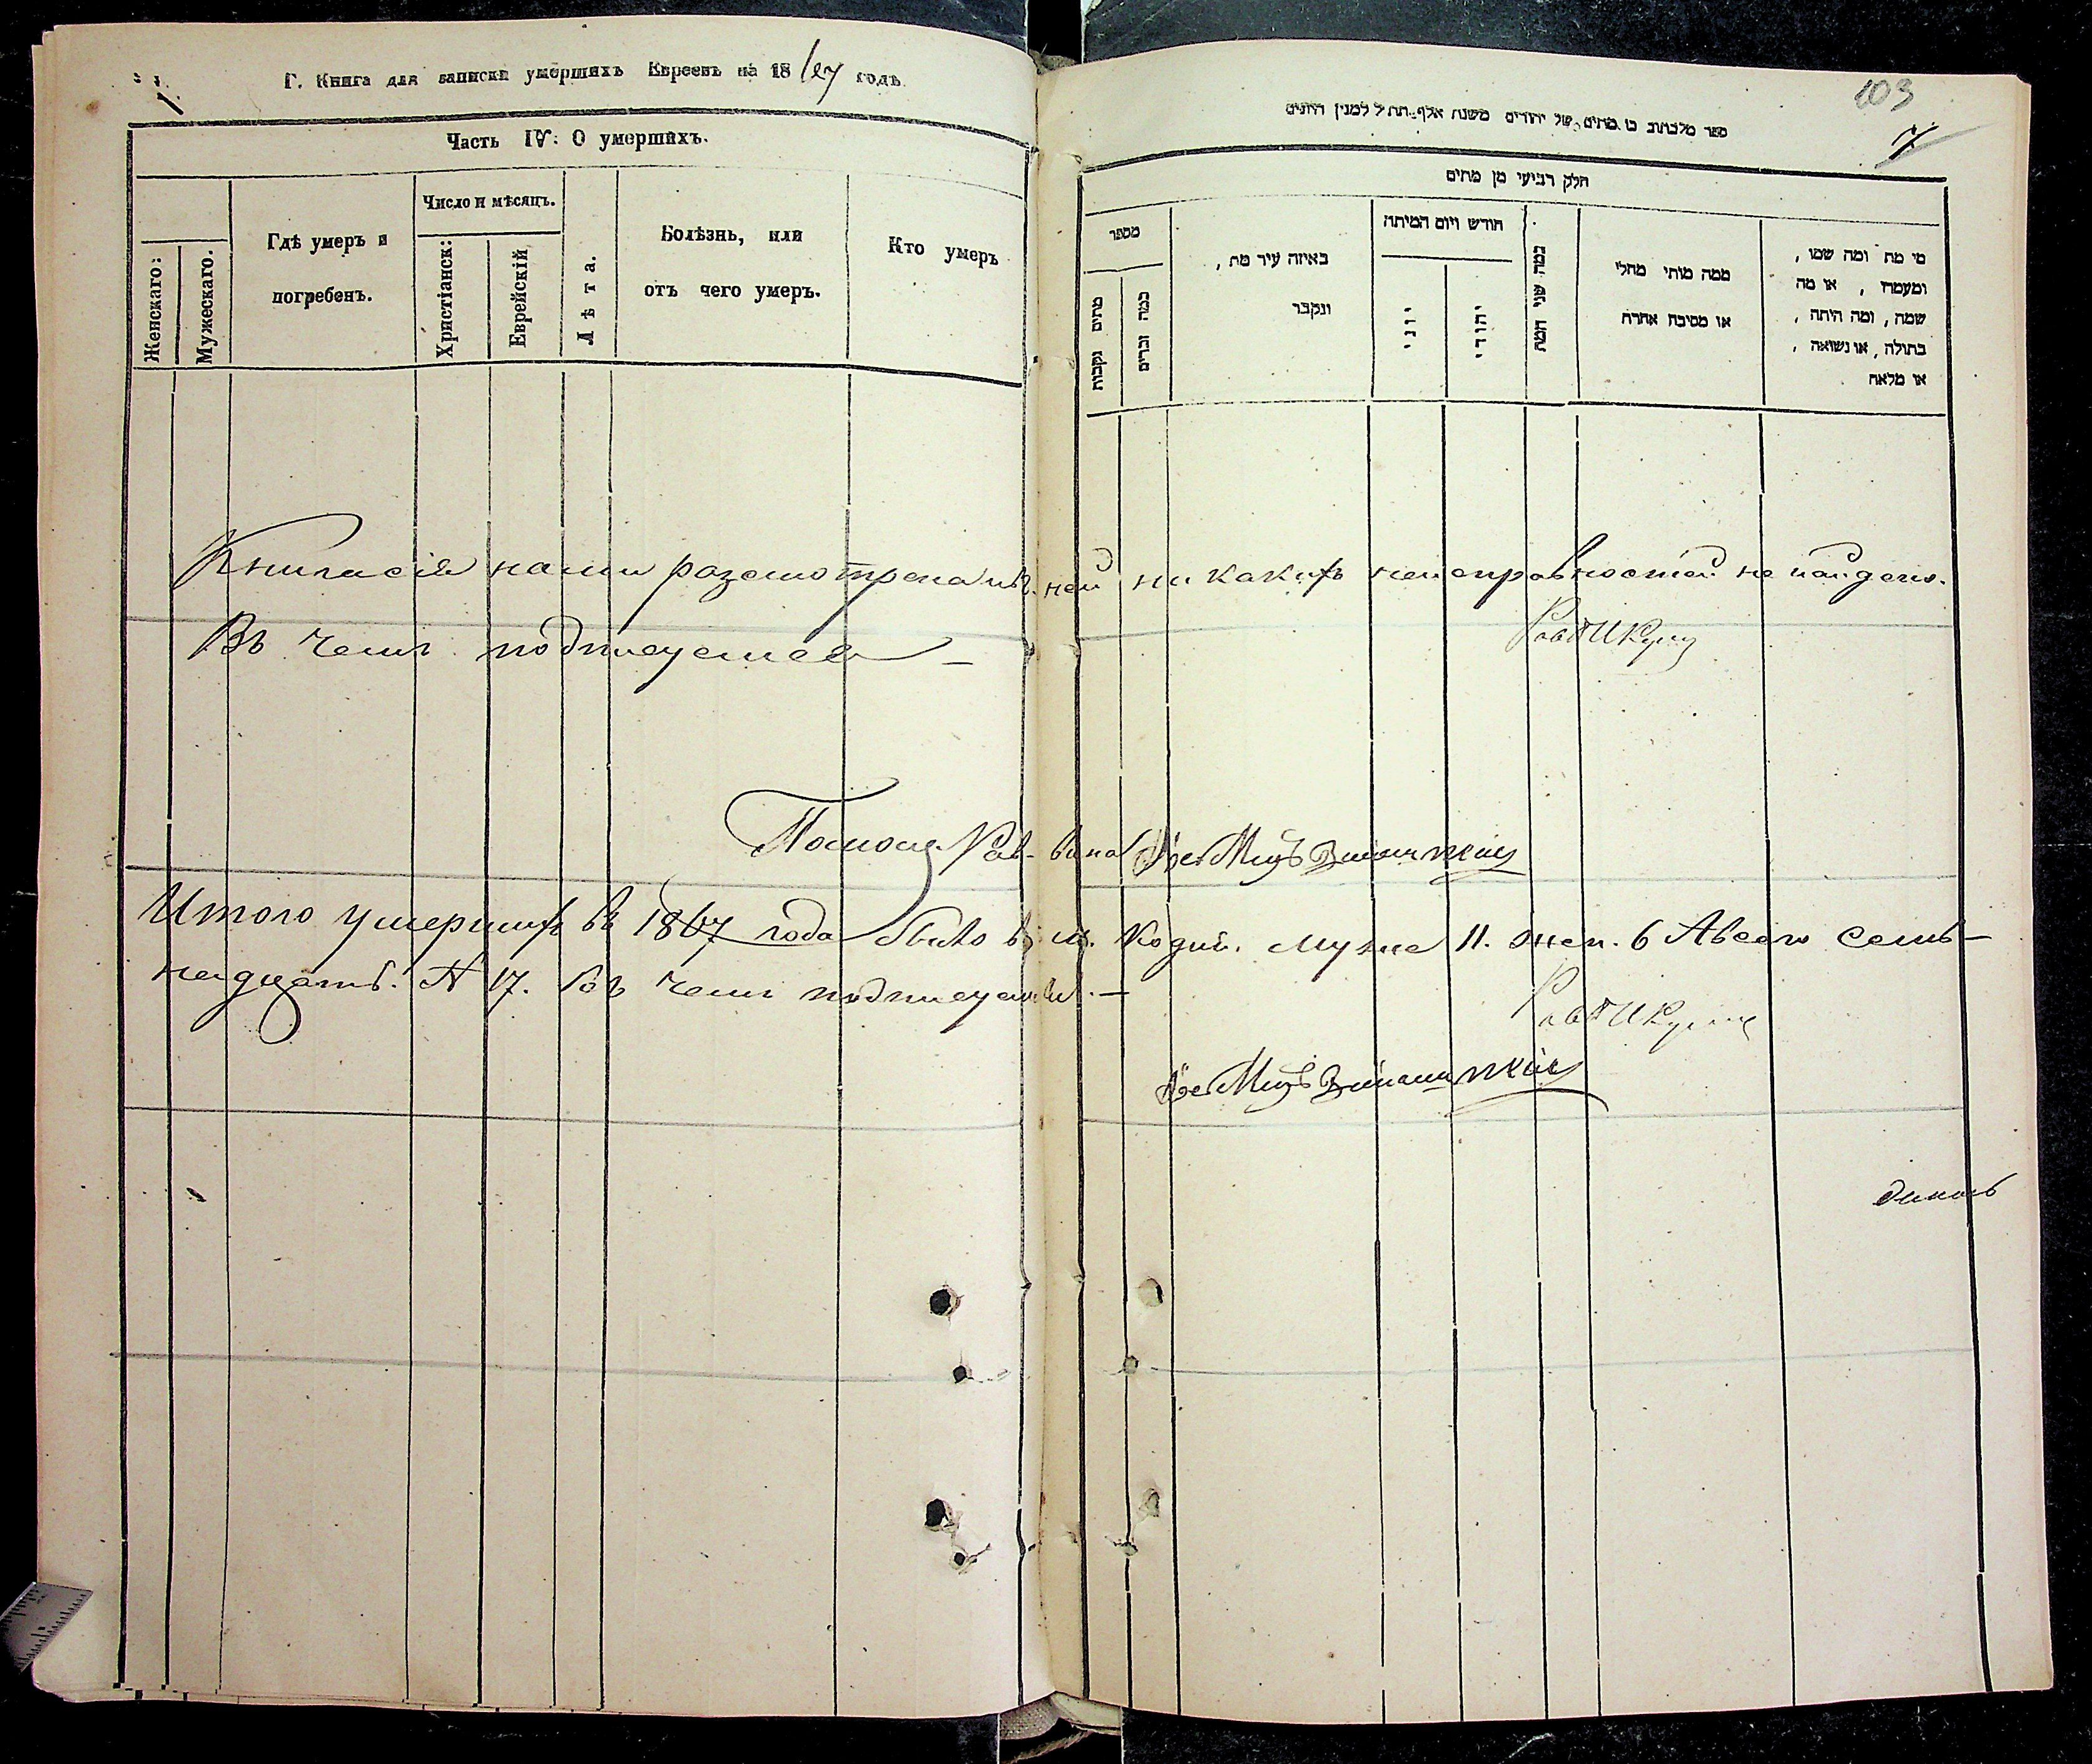 Г. Книга для записки умершихъ Евреевъ на 1867 годъ
Часть IV: О умершихъ.
Женскаго:
Мужескаго.
Гдѣ умеръ и
погребенъ.
Число и мѣсяцъ.
Христіанск:
Еврейскій
Лѣта.
Болѣзнь, или
отъ чего умеръ.
Кто умеръ
103
ספר מלכתוב בו מתים של יהודים משנת אלף תת״ל למנין היונים
חלק רביעי מן מתים
מספר
מתים נקבות
כמה זכרים
באיזה עיר מת,
ונקבר
חודש ויום המיתה
יוני
יהודי
כמה שני המת
ממה מותי מחלי
או מסיבה אחרת
מי מת ומה שמו,
ומעמדו, או מה
שמה, ומה היתה,
בתולה, או נשואה,
או מלאה
Книга сія нами разсмотрена въ ней ни какихъ неисправностей не найдено.
Въ чемъ подписуемся —
Помощ. Раввина
Итого умершихъ въ 1867 года было в м. Кодни. муже 11. жен. 6 А всего семь-
надцать. № 17. въ чемъ подписуемся. —